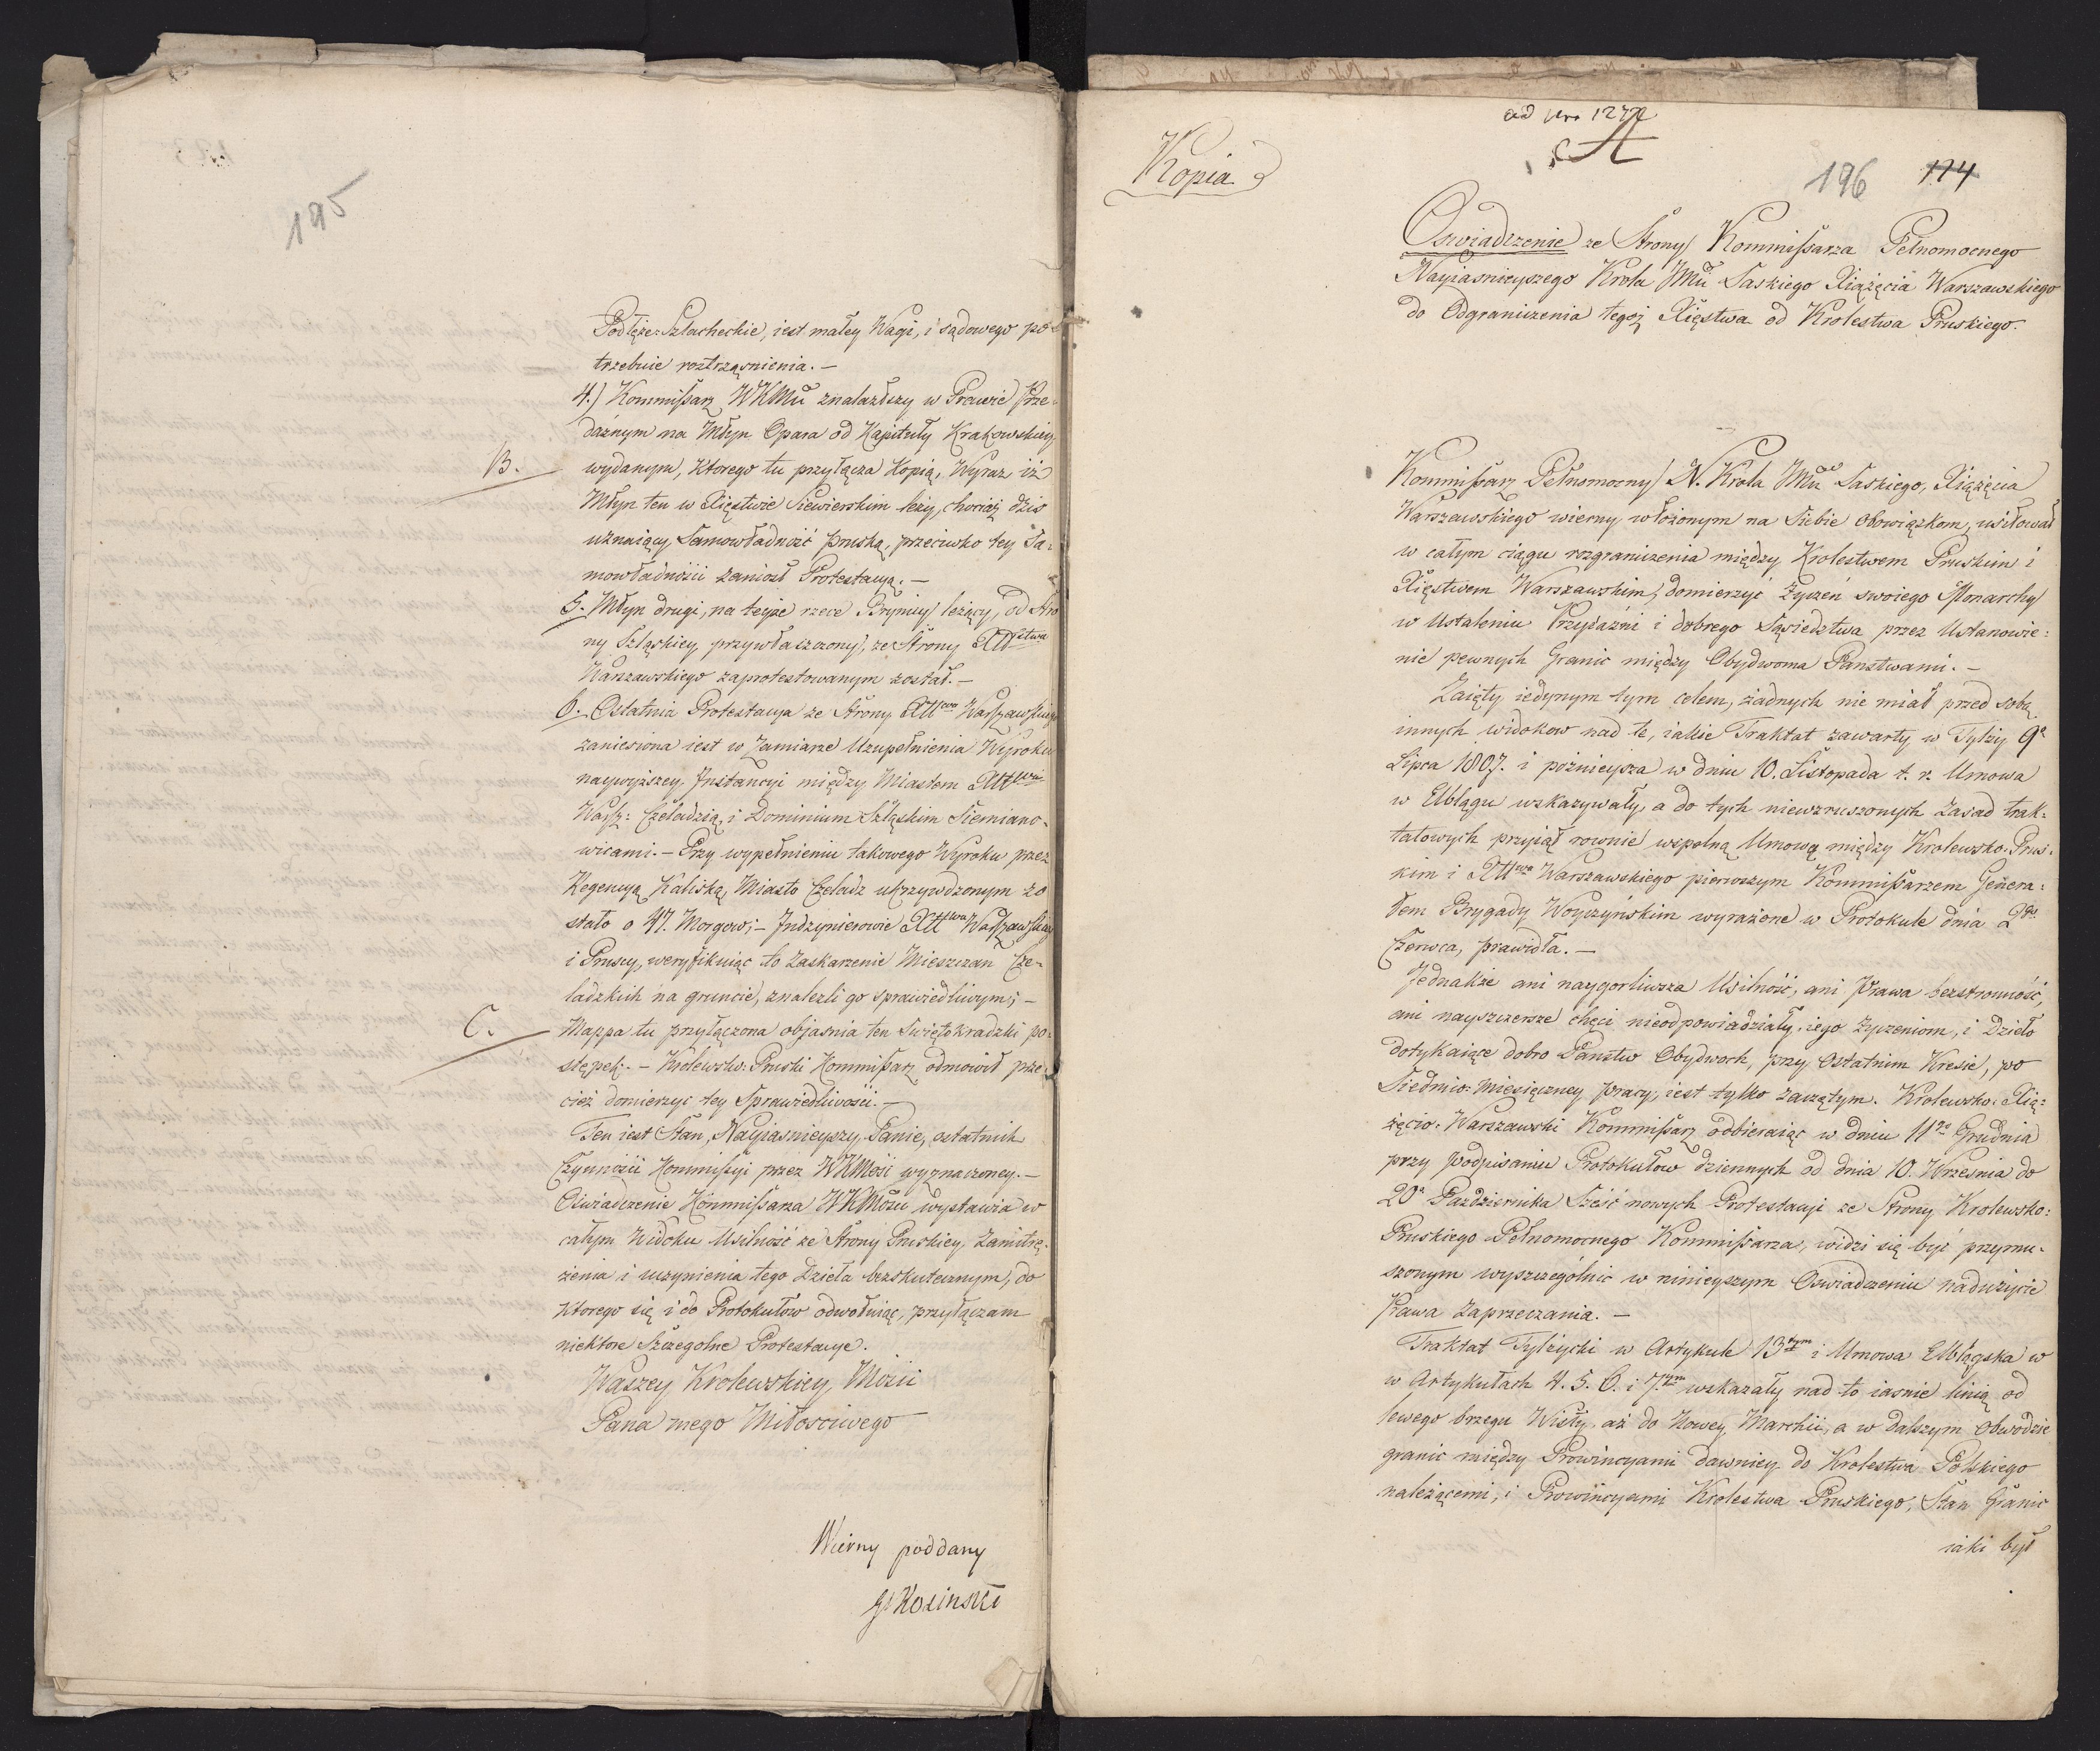 195
Podłęże Szlacheckie, iest małey Wagi, i sądowego po-
trzebuie roztrząsnienia. —
4.) Kommissarz WKMci znalazłszy w Prawie Prze-
dażnym na Młyn Opara od Kapituły Krakowskiey
B. wydanym, ktorego tu przyłącza Kopią, Wyraz iż
Młyn ten w Xięstwie Siewierskim leży, chociaż dziś
uznaiący Samowładność pruską, przeciwko tey Sa-
mowładności zaniosł Protestacyą. —
5. Młyn drugi, na teyże rzece Brynicy leżący, od Stro
ny Szląskiey przywłaszczony, ze Strony Xttstwa
Warszawskiego zaprotestowanym został. —
6. Ostatnia Protestacya ze Strony Xttwa Warszawskiego
zaniesiona iest w Zamiarze Uzupełnienia Wyroku
naywyższey Instancyi między Miastem Xttwa
Warsz: Czeladzią, i Dominium Szląskim Siemiano-
wicami. — Przy wypełnieniu takowego Wyroku przez
Regencyą Kaliską, Miasto Czeladz ukrzywdzonym zo
stało o 47. Morgow; — Indzynierowie Xttwa Warszawskiego
i Pruscy, weryfikuiąc to Zaskarżenie Mieszczan Cze-
ladzkich na gruncie, znalezli go sprawiedliwym; —
C. Mappa tu przyłączona objasnia ten Swiętokradzki po-
stępek. — Krolewsko-Pruski Kommissarz odmowił prze-
cież domierzyć tey Sprawiedliwości. —
Ten iest Stan, Nayiasnieyszy Panie, ostatnich
Czynności Kommissyi przez WKMości wyznaczoney. —
Oświadczenie Kommissarza WKMości wystawia w
całym Widoku Usilność ze Strony Pruskiey, Zamitrę-
żenia i uczynienia tego Dzieła bezskutecznym, do
ktorego się i do Protokułow odwołuiąc, przyłączam
niektore Szczegolne Protestacye.
Waszey Krolewskiey Mości
Pana mego Miłosciwego
Wierny poddany
Kosinski
ad Nro 1272
A
Kopia
196 174
Oswiadczenie ze Strony Kommissarza Pełnomocnego
Nayiasnieyszego Krola JMci Saskiego Xiążęcia Warszawskiego
do Odgraniczenia tegoż Xięstwa od Krolestwa Pruskiego.
Kommissarz Pełnomocny N. Krola JMci Saskiego, Xiążęcia
Warszawskiego wierny włożonym na Siebie obowiązkom, usiłował
w całym ciągu rozgraniczenia między Krolestwem Pruskim i
Xięstwem Warszawskim, domierzyć Zyczeń swoiego Monarchy
w Ustaleniu Przyiaźni i dobrego Sąsiedztwa przez Ustanowie-
nie pewnych Granic między Obydwoma Panstwami. —
Zaięty iedynym tym celem, żadnych nie miał przed sobą
innych widokow nad te, iakie Traktat zawarty w Tylży 9a
Lipca 1807. i poźnieysza w dniu 10. Listopada t. r. Umowa
w Elblągu wskazywały, a do tych niewzruszonych Zasad trak-
tatowych przyiął rownie wspolną Umową między Krolewsko-Prus-
kim i Xttwa Warszawskiego pierwszym Kommissarzem Genera-
łem Brygady Woyczyńskim wyrażone w Protokule dnia 2go
Czerwca, prawidła. —
Jednakże ani naygorliwsza Usilność, ani Prawa bezstronność,
ani nayszczersze chęci nieodpowiadziały, iego życzeniom, i Dzieło
dotykaiące dobro Panstw Obydwoch, przy ostatnim Kresie, po
Siedmio-miesięczney pracy, iest tylko zaczętym. Krolewsko-Xią-
żęcio-Warszawski Kommissarz odbieraiąc w dniu 11go Grudnia
przy podpisaniu Protokułow dziennych od dnia 10. Wrzesnia do
20a Pazdziernika Sześć nowych Protestacyi ze Strony Krolewsko-
Pruskiego Pełnomocnego Kommissarza, widzi się być przymu-
szonym wyszczególnić w ninieyszym Oswiadczeniu nadużycie
Prawa Zaprzeczania. —
Traktat Tylżycki w Artykule 13tym i Umowa Elblągska w
w Artykułach 4. 5. 6. i 7ym wskazały nad to iasnie linią od
lewego brzegu Wisły aż do Nowey Marchii, a w dalszym Obwodzie
granic między Prowincyami dawniey do Krolestwa Polskiego
należącemi, i Prowincyami Krolestwa Pruskiego, Stan Granic
iaki był